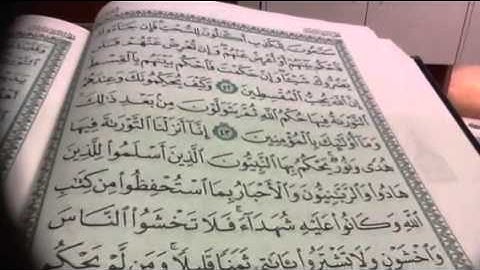 سَمَّٰعُونَ لِلْكَذِبِ أَكَّٰلُونَ لِلسُّحْتِ فَإِن جَآءُوكَ
فَٱحْكُم بَيْنَهُمْ أَوْ أَعْرِضْ عَنْهُمْ وَإِن تُعْرِضْ عَنْهُمْ فَلَن
يَضُرُّوكَ شَيْـًٔا وَإِنْ حَكَمْتَ فَٱحْكُم بَيْنَهُم بِٱلْقِسْطِ
إِنَّ ٱللَّهَ يُحِبُّ ٱلْمُقْسِطِينَ ٤٢ وَكَيْفَ يُحَكِّمُونَكَ وَعِندَهُمُ
ٱلتَّوْرَىٰةُ فِيهَا حُكْمُ ٱللَّهِ ثُمَّ يَتَوَلَّوْنَ مِنۢ بَعْدِ ذَٰلِكَ
وَمَآ أُو۟لَٰٓئِكَ بِٱلْمُؤْمِنِينَ ٤٣ إِنَّآ أَنزَلْنَا ٱلتَّوْرَىٰةَ فِيهَا
هُدًى وَنُورٌ يَحْكُمُ بِهَا ٱلنَّبِيُّونَ ٱلَّذِينَ أَسْلَمُوا۟ لِلَّذِينَ
هَادُوا۟ وَٱلرَّبَّٰنِيُّونَ وَٱلْأَحْبَارُ بِمَا ٱسْتُحْفِظُوا۟ مِن كِتَٰبِ
ٱللَّهِ وَكَانُوا۟ عَلَيْهِ شُهَدَآءَ ۚ فَلَا تَخْشَوُا۟ ٱلنَّاسَ
وَٱخْشَوْنِ وَلَا تَشْتَرُوا۟ بِـَٔايَٰتِى ثَمَنًا قَلِيلًا ۚ وَمَن لَّمْ يَحْكُم